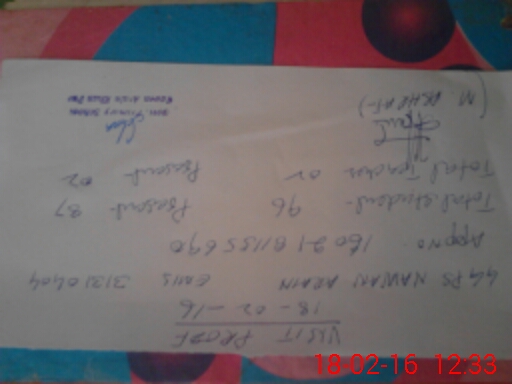 VISIT PROOF
18-02-16
GGPS NAWAN ARAIN EMIS 31310404
App no. 1602181155690
Total student- 96 Present- 87
Total Teacher 02 Present- 02
(M. ASHRAF)
Govt. Primary School
18-02-16 12:33